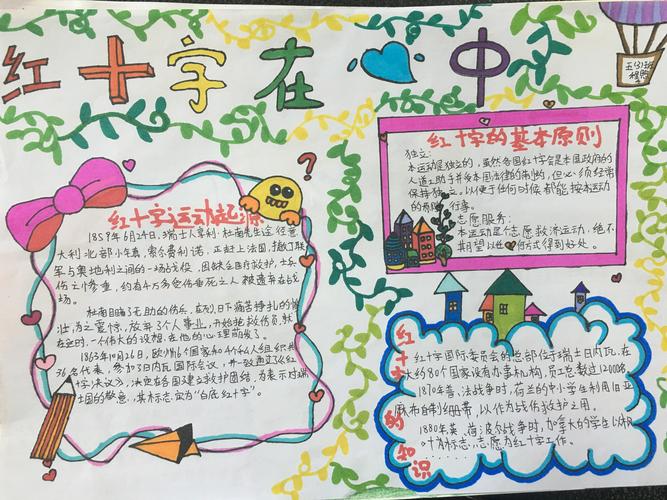 红十字在心中
五(3)班
红十字运动起源
1859年6月24日,瑞士人亨利·杜南先生途经意
大利北部小车、索尔费利诺,正赶上法国、撒丁联
军与奥地利之间的一场战役,因缺乏医疗救护,士兵
伤亡惨重,约有4万多受伤垂死之人被遗弃在战
场。
杜南目睹了无助的伤兵,在烈日下痛苦挣扎的情
景,为之震惊,放弃了个人事业,开始抢救伤员,就
在这时,一个伟大的设想,在他的心里萌发了。
1863年10月26日,欧洲16个国家和4个私人组织共
36名代表,参加3日内瓦国际会议,并一致通过了《红
十字决议》,决定在各国建立救护团结,为表示对瑞
士国的敬意,其标志定为“白底红十字”。
红十字的基本原则
独立:
本运动是独立的,虽然各国红十字会是本国政府的
人道工助手并受本国法律的制约,但必须经常
保持独立,以便于任何时候都能按本运动
的原则行事。
志愿服务:
本运动是个志愿救济运动,绝不
期望以任何方式得到好处。
红十字的知识
红十字国际委员会的总部位于瑞士日内瓦,在
大约80个国家设有办事机构,员工总数过12000名。
1870年普、法战争时,荷兰的中小学生利用旧亚
麻布自制绷带,以作为战伤救护之用。
1880年英、荷波尔战争时,加拿大的学生以红
十为标志,志愿为红十字工作。
......